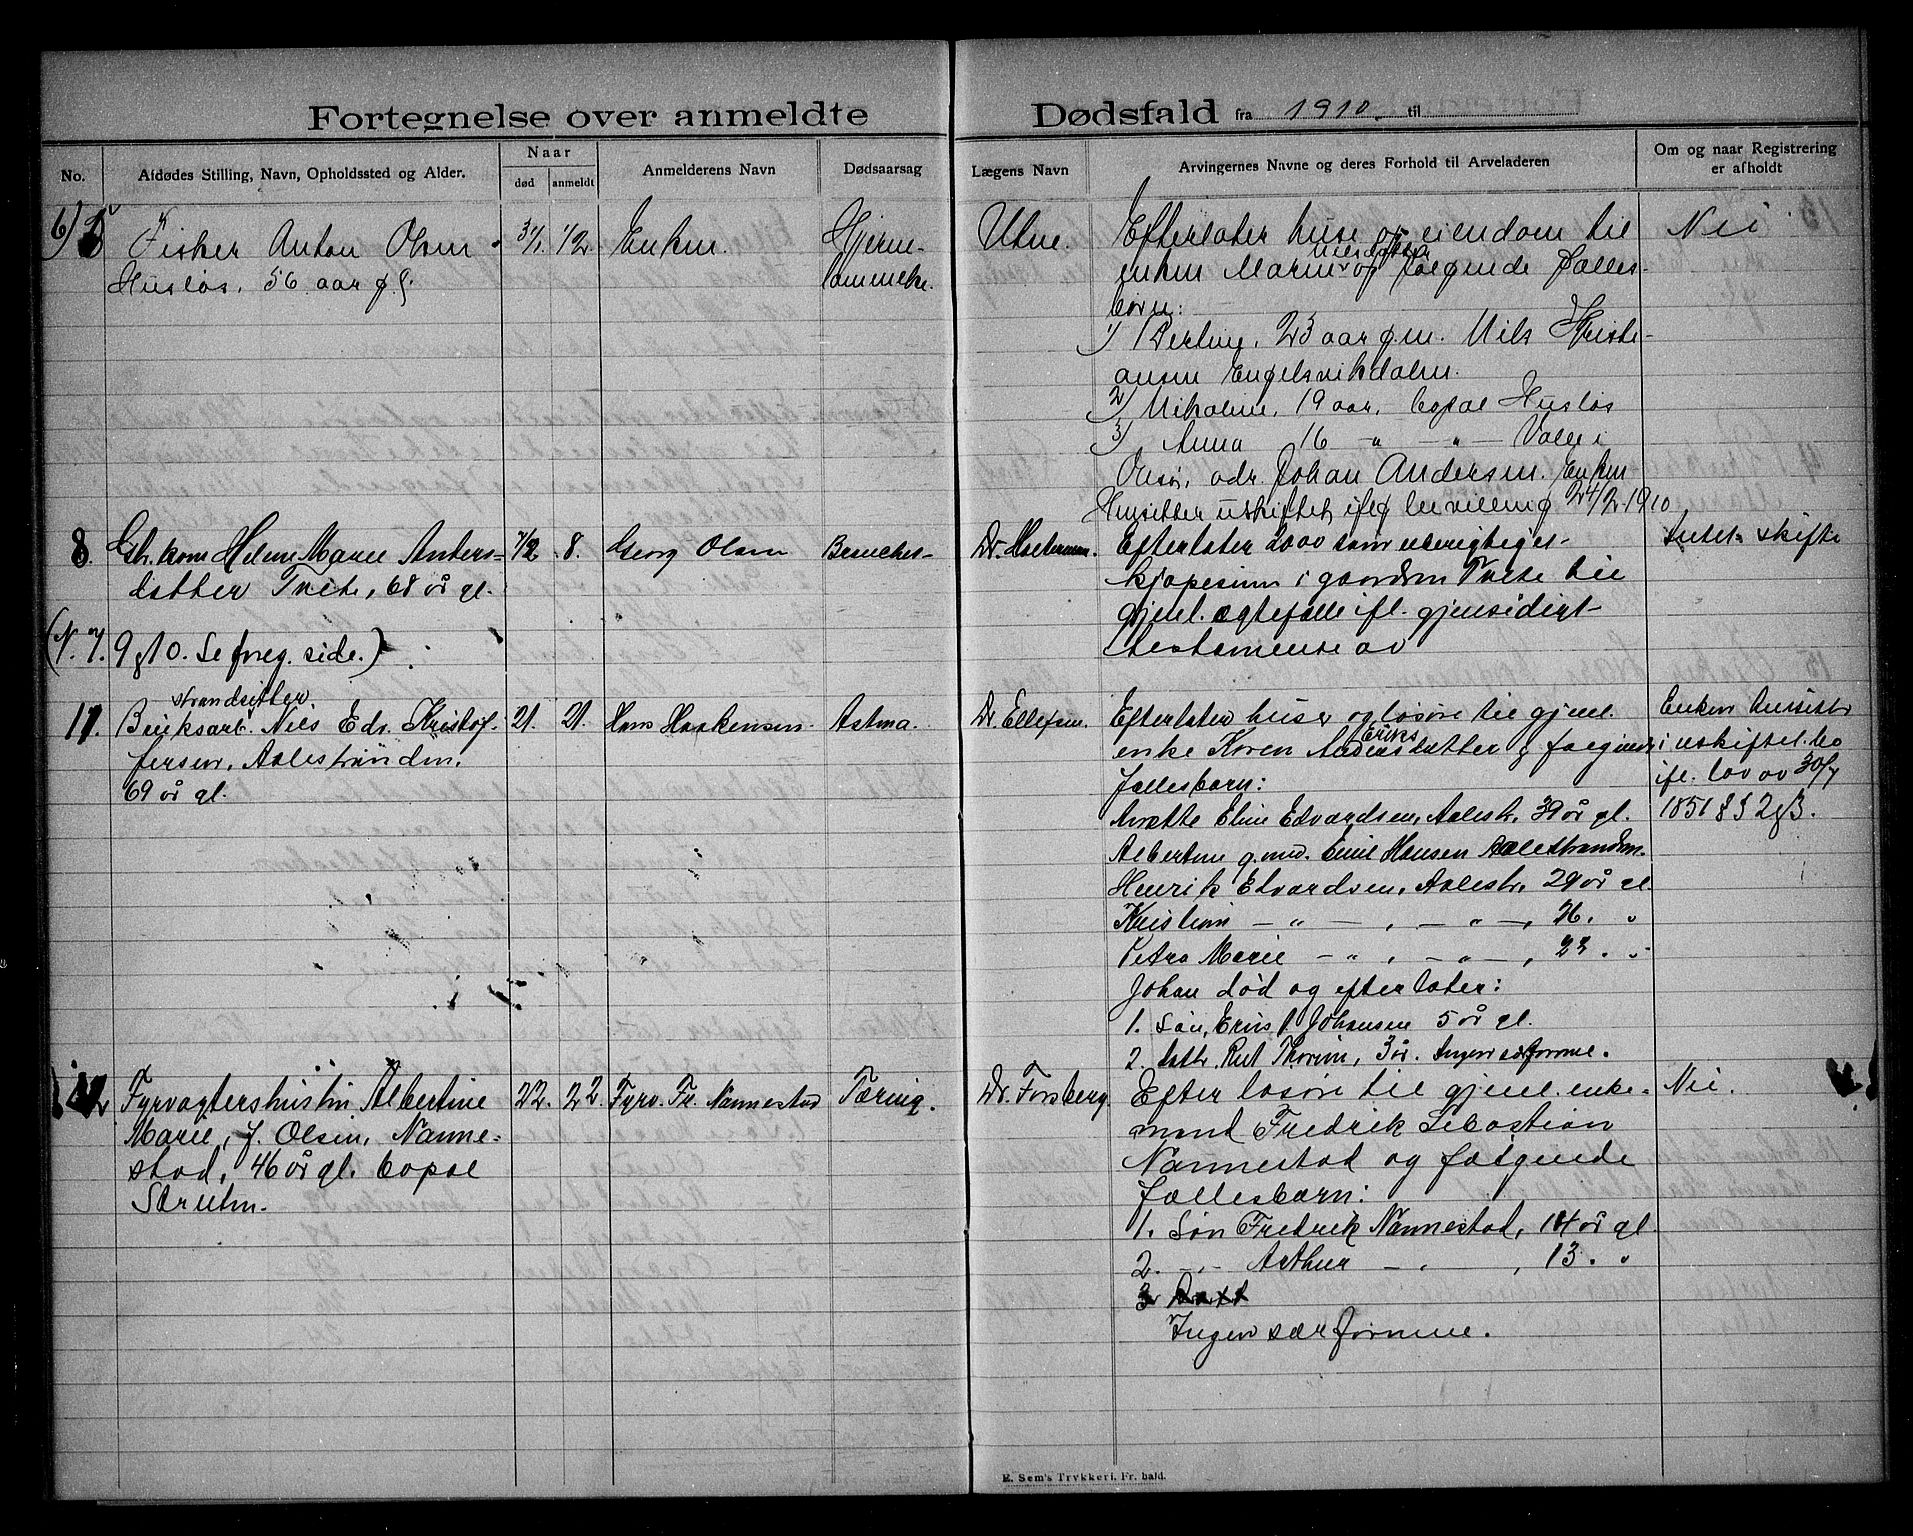 Fortegnelse over anmeldte Dødsfald fra 1910. til
No.
Afdødes Stilling, Navn, Opholdssted og Alder.
Naar
død
anmeldt
Anmelderens Navn
Dødsaarsag
Lægens Navn
Arvingernes Navne og deres Forhold til Arveladeren
Om og naar Registrering
er afholdt
6)
Fisker Anton Olsen
Husløs, 56 aar g.
31/1
1/2
Enken.
Hjerne-
Utne.
Efterlater huse og eiendom til
enken Maren Nilsdatter og følgende fælles-
børn:
1) Berting, 23 aar g.m. Nils Kristi-
ansen Engelsvikdalen.
2) Nikoline, 19 aar, bopæl Husløs
3) Anna 16 " — " — Valle i
Onsø, adr. Johan Andersen. Enken
Hensitter uskiftet, iflg bevilling 24/2 1910
Nei
8.
Gbr.kom Helene Marie Anders-
datter Tvete, 68 år gl.
7/2
8.
Georg Olsen
Dr.
Efterlater 2000 som
i gaarden Tvete til
gjenl. ægtefælle ifl. gjensidigt
testamente av
Intet skifte
(N. 7. 9 & 10. Se foreg. side.)
11.
strandsitter
Bruksarb. Nils Edv. Kristof-
fersen, Aalestranden,
69 år gl.
21.
21.
Hans Haakensen
Astma.
Dr. Ellefsen.
Efterlater huse og løsøre til gjenl.
enke Karen Eriksdatter & følgende
fællesbarn:
Anette Eline Edvardsen, Aalestr. 39 år gl.
Albertine g. med. Emil Hansen Aalestranden.
Henrik Edvardsen, Aalestr. 29 år gl
Kristian — " — , — " — , 26. "
Petra Marie — " , — " — , 23. "
Johan død og efterlater:
1. Søn, Ernst Johansen 5 år gl.
2. datr. Rut Thorine, 3 år. Ingen særformue.
Enken hensitter
i uskiftet bo
ifl. lov av 30/7
1851 §§ 2 & 3.
12
Fyrvogtershustru Albertine
Marie, f. Olsen, Nanne-
stad, 46 år gl. bopæl
Struten.
22.
22.
Fyrv. Fr. Nannestad
Tæring.
Dr. Forsberg.
Efter løsøre til gjenl. enke-
mand Fredrik Sebastian
Nannestad og følgende
fællesbarn:
1. Søn Fredrik Nannestad, 14 år gl.
2. — " — Arthur — " — , 13. "
3
Ingen særformue.
Nei.
E. Sem's Trykkeri, Fr. hald.